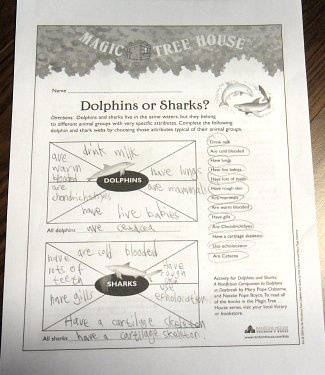 MAGIC TREE HOUSE
Name
Dolphins or Sharks?
Directions: Dolphins and sharks live in the same waters, but they belong
to different animal groups with very specific attributes. Complete the following
dolphin and shark webs by choosing those attributes typical of their animal groups.
drink milk
are
warm
blooded
have lungs
are
chondrichthyes
are mammals
DOLPHINS
have live babies
All dolphins are
Drink milk
Are cold blooded
Have lungs
Have live babies
Have lots of teeth
Have rough skin
Are mammals
Are warm blooded
Have gills
Are Chondrichthyes
Have a cartilage skeleton
Use echolocation
Are Cetacea
are cold blooded
have
lots of
teeth
have
rough
have gills
use
echolocation
SHARKS
Have a cartilage skeleton
All sharks have a cartilage skeleton.
Activity for Dolphins and Sharks:
A Nonfiction Companion to Dolphins
at Daybreak by Mary Pope Osborne
and Natalie Pope Boyce. To read all
of the books in the Magic Tree
House series, visit your local library
or bookstore.